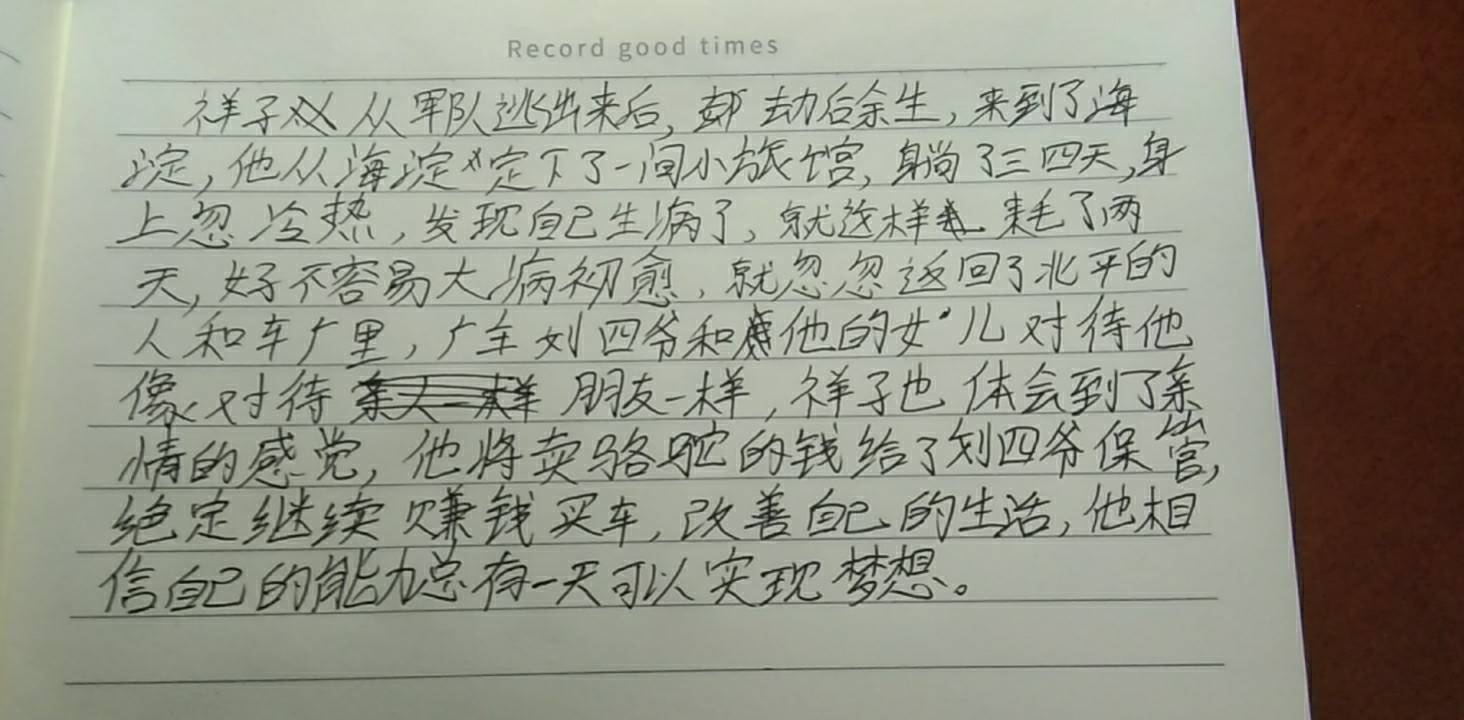 Record good times
祥子从军队逃出来后,却劫后余生,来到了海
淀,他从海淀定下了一间小旅馆,躺了三四天,身
上忽冷热,发现自己生病了,就这样耗了两
天,好不容易大病初愈,就忽忽返回了北平的
人和车厂里,厂主刘四爷和他的女儿对待他
像对待朋友一样,祥子也体会到了亲
情的感觉,他将卖骆驼的钱给了刘四爷保管,
绝定继续赚钱买车,改善自己的生活,他相
信自己的能力总有一天可以实现梦想。